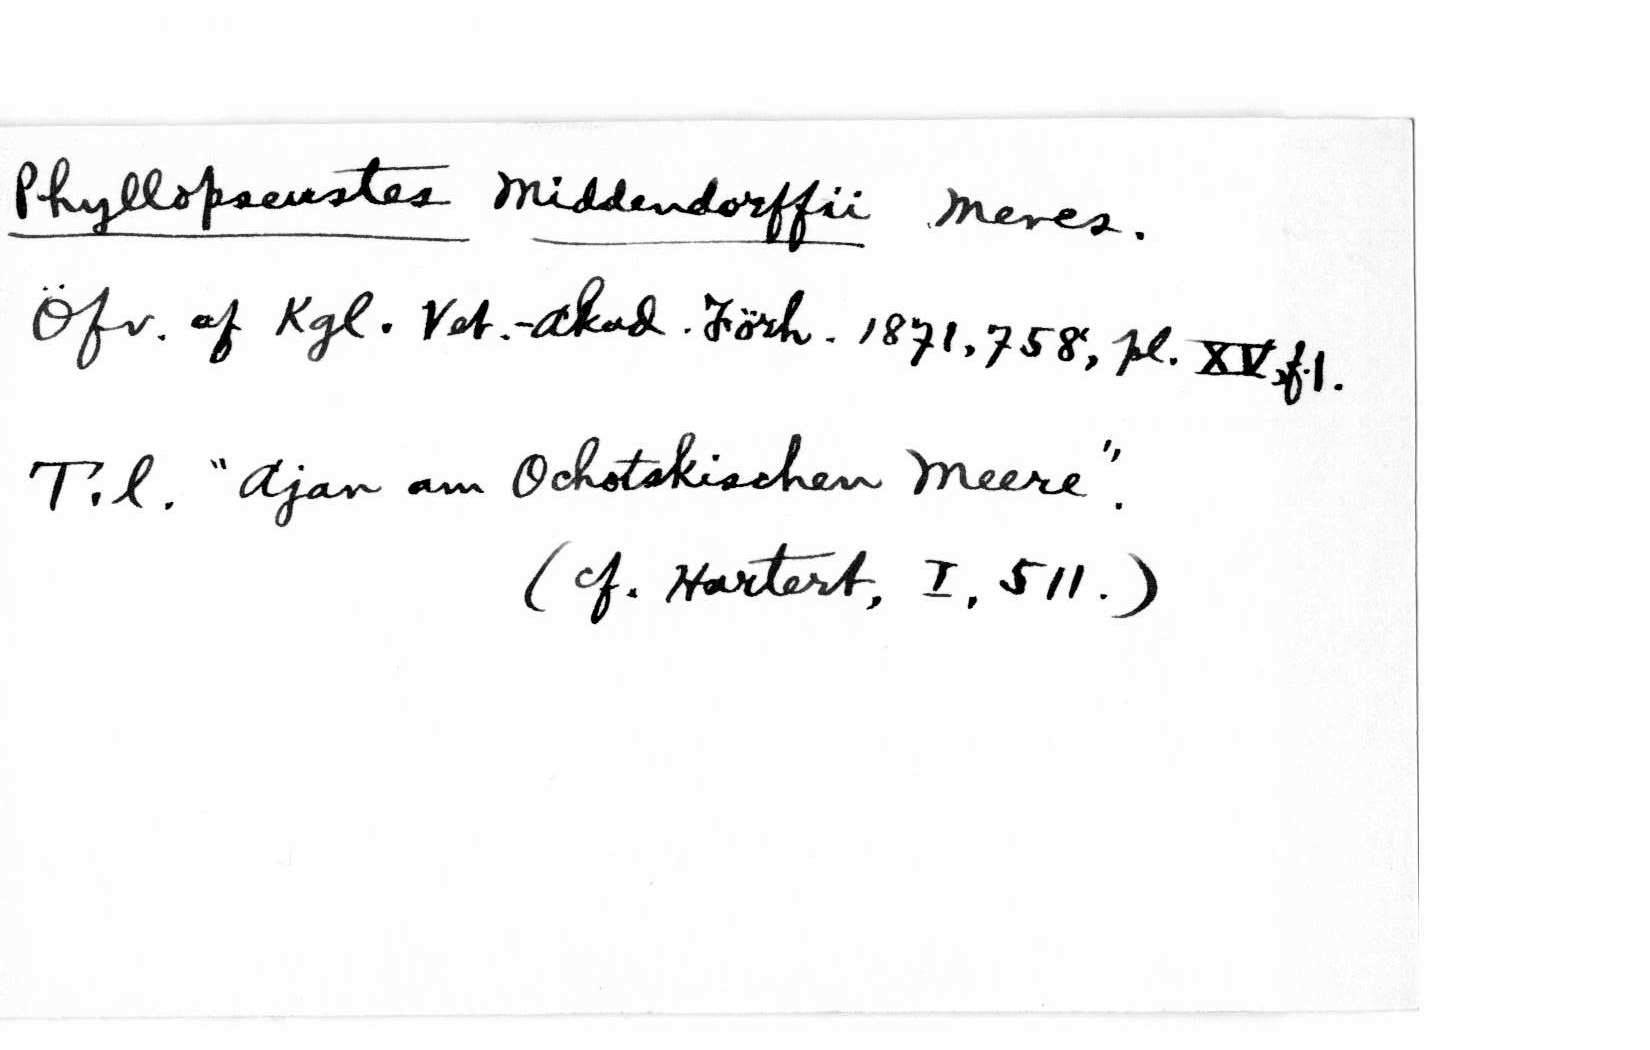 Phyllopseustes Middendorffii Meves.
Öfv. af Kgl. Vet.-Akad. Förh. 1871, 758, pl. XV, f.1.
T.l. "Ajan am Ochotskischen Meere".
(cf. Hartert, I, 511.)